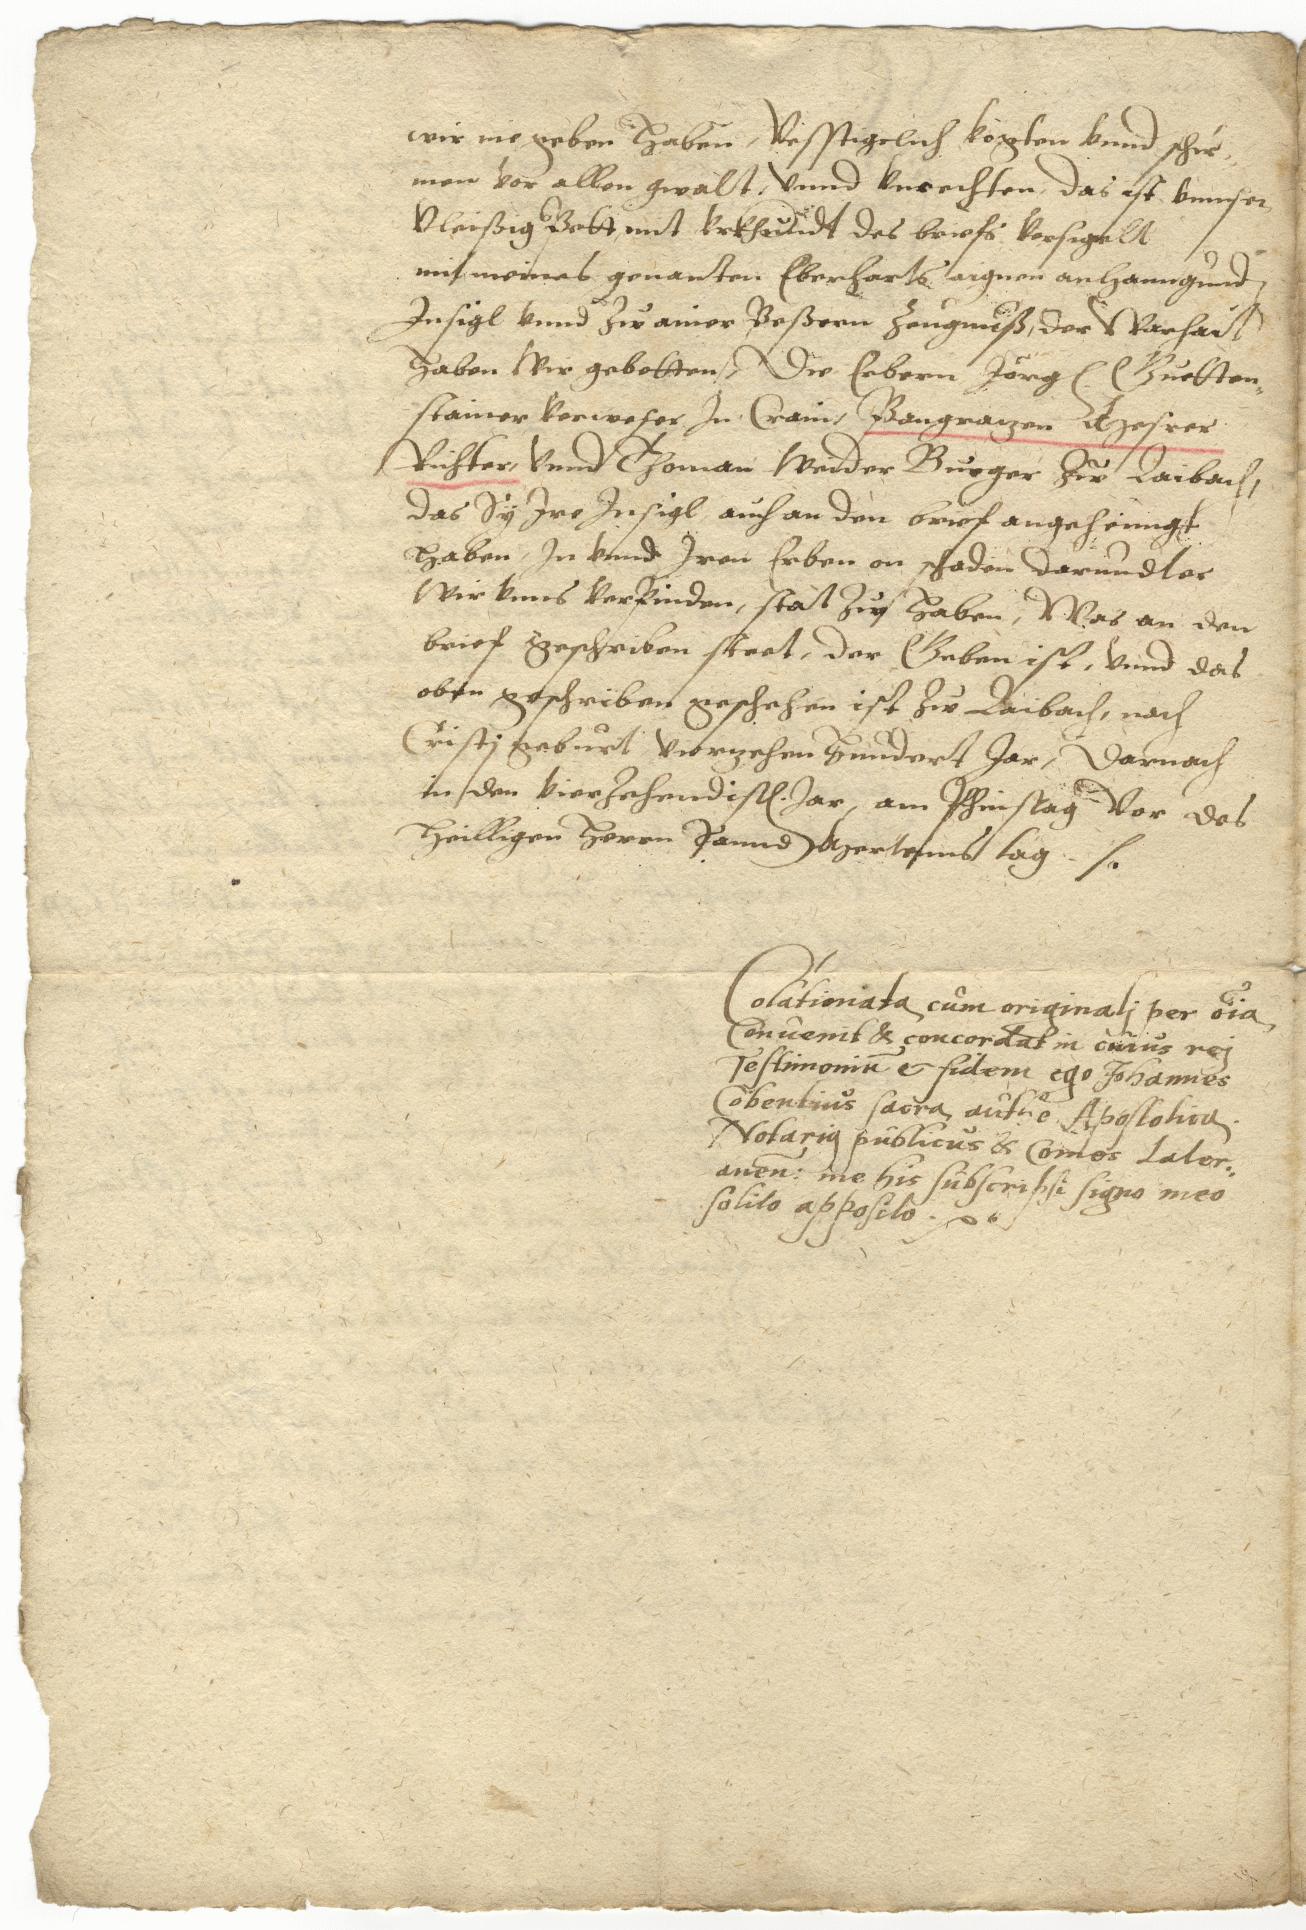 wir inegeben haben, Vesstigelich vogten vnnd schir-
men vor allen gwalt, vnnd vnrechten, das ist vnnser
Vleißig Pett, mit vrkhundt des briefs versigelt
mit meines genanten Eberharts aignen anhanngund
Insigl vnnd zw ainer Peßern zeugnuß, der Warhait
haben Wir gebetten, Die Erbern Jörg Guetten-
stainer verweser In Crain, Pangraczen
Richter, vnnd Thoman Weider Burger zw Laibach,
das Sÿ Ire Insigl auch an den brief angehenngt
haben, In vnnd Iren Erben on schaden darundter
Wir vnns verpinden, stat zw haben, Was an den
brief geschriben steet, der Geben ist, vnnd das
oben geschriben geschehen ist zw Laibach, nach
Cristj geburt vierzehenhundert Jar, Darnach
in den vierzehendisten Jar, am Phinstag Vor des
heilligen herrn Sannd Mertenns tag
Colationata cum originalj per oīa
Conuenit & concordat in cuius rej
Testimoniū & fidem ego Johannes
Cobentius sacra autūe Apostolica
Notariq publicus & Comes Later:
anen: me his subscripsi signo meo
solito apposito